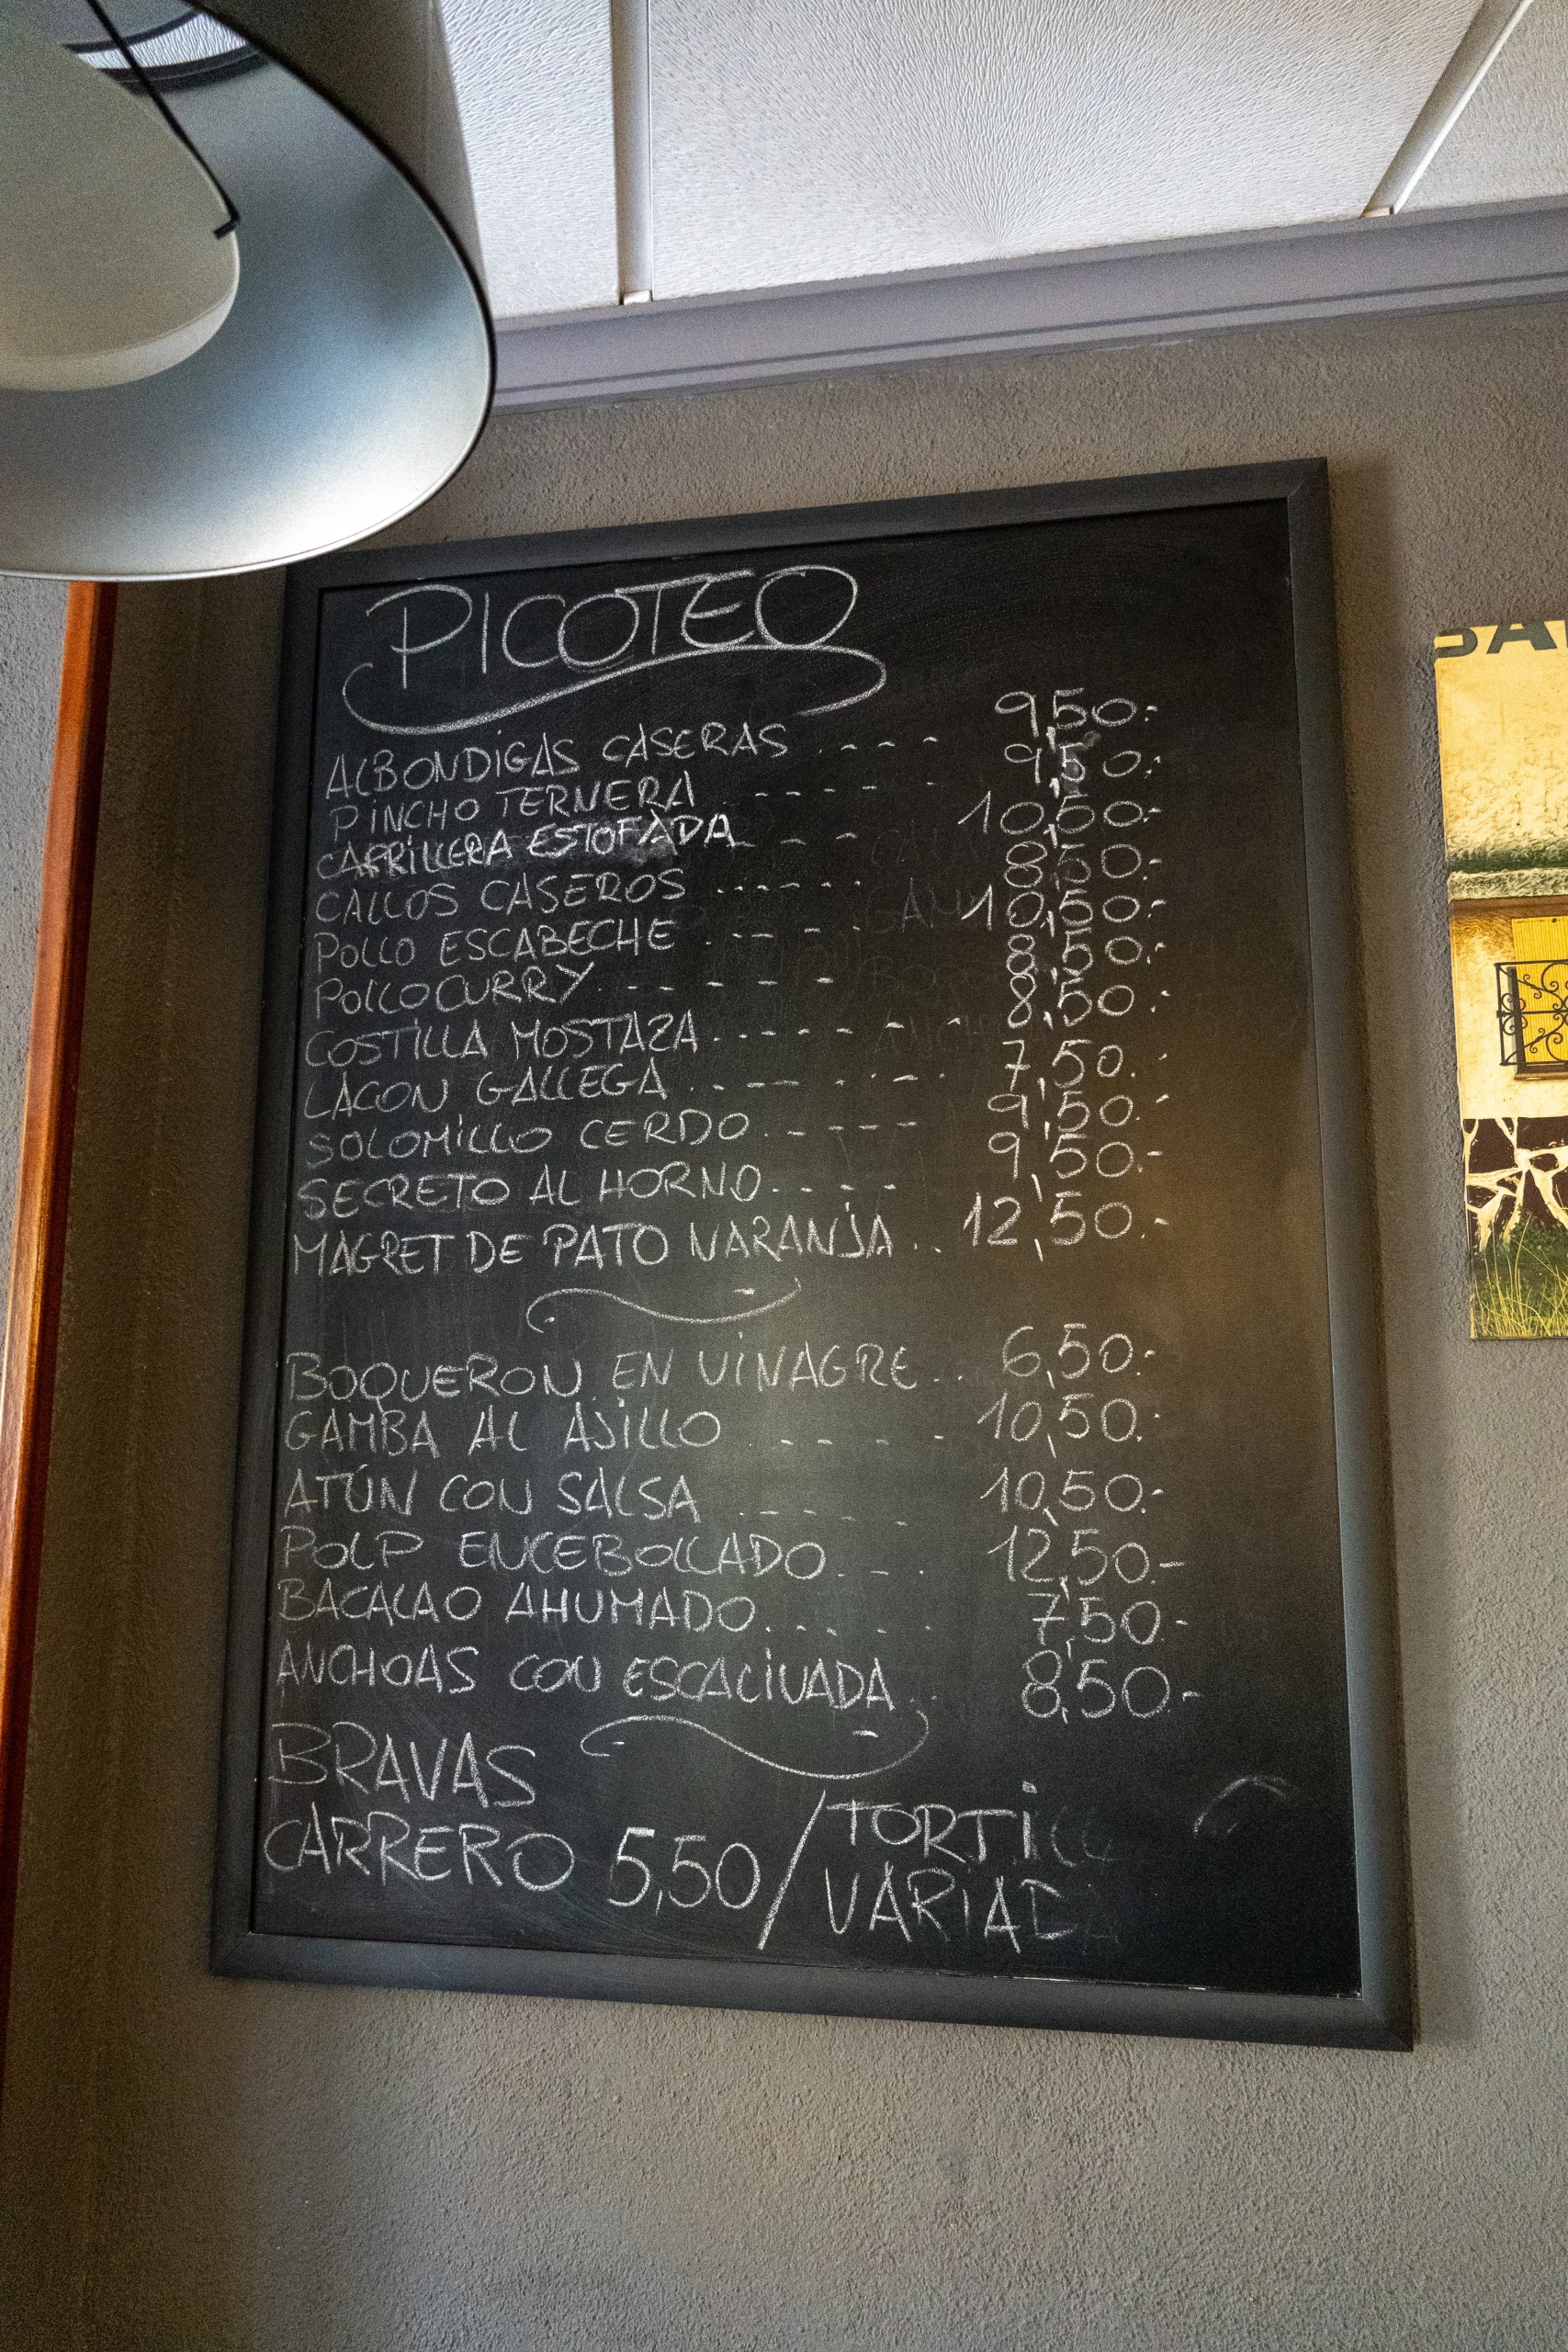 PICOTEO
ALBONDIGAS CASERAS . - - - - 9,50.-
PINCHO TERNERA - - - - - - 9,50.-
CARRILLERA ESTOFADA - - - - 10,50.-
CALLOS CASEROS - - - - - - 8,50.-
POLLO ESCABECHE . - - - - 10,50.-
POLLO CURRY . - - - - - 8,50.-
COSTILLA MOSTAZA - - - - - - - 8,50.-
LACON GALLEGA . - - - - - - 7,50.
SOLOMILLO CERDO . - - - - 9,50.-
SECRETO AL HORNO - - - - 9,50.-
MAGRET DE PATO NARANJA . . 12,50.-
BOQUERON EN VINAGRE . . 6,50.-
GAMBA AL AJILLO . - - - - 10,50.-
ATÚN CON SALSA . - - - - 10,50.-
POLP ENCEBOLLADO . - - . 12,50.-
BACALAO AHUMADO . . . . . 7,50.-
ANCHOAS CON ESCALIVADA . . 8,50.-
BRAVAS
CARRERO 5,50 / TORTILL
VARIADA